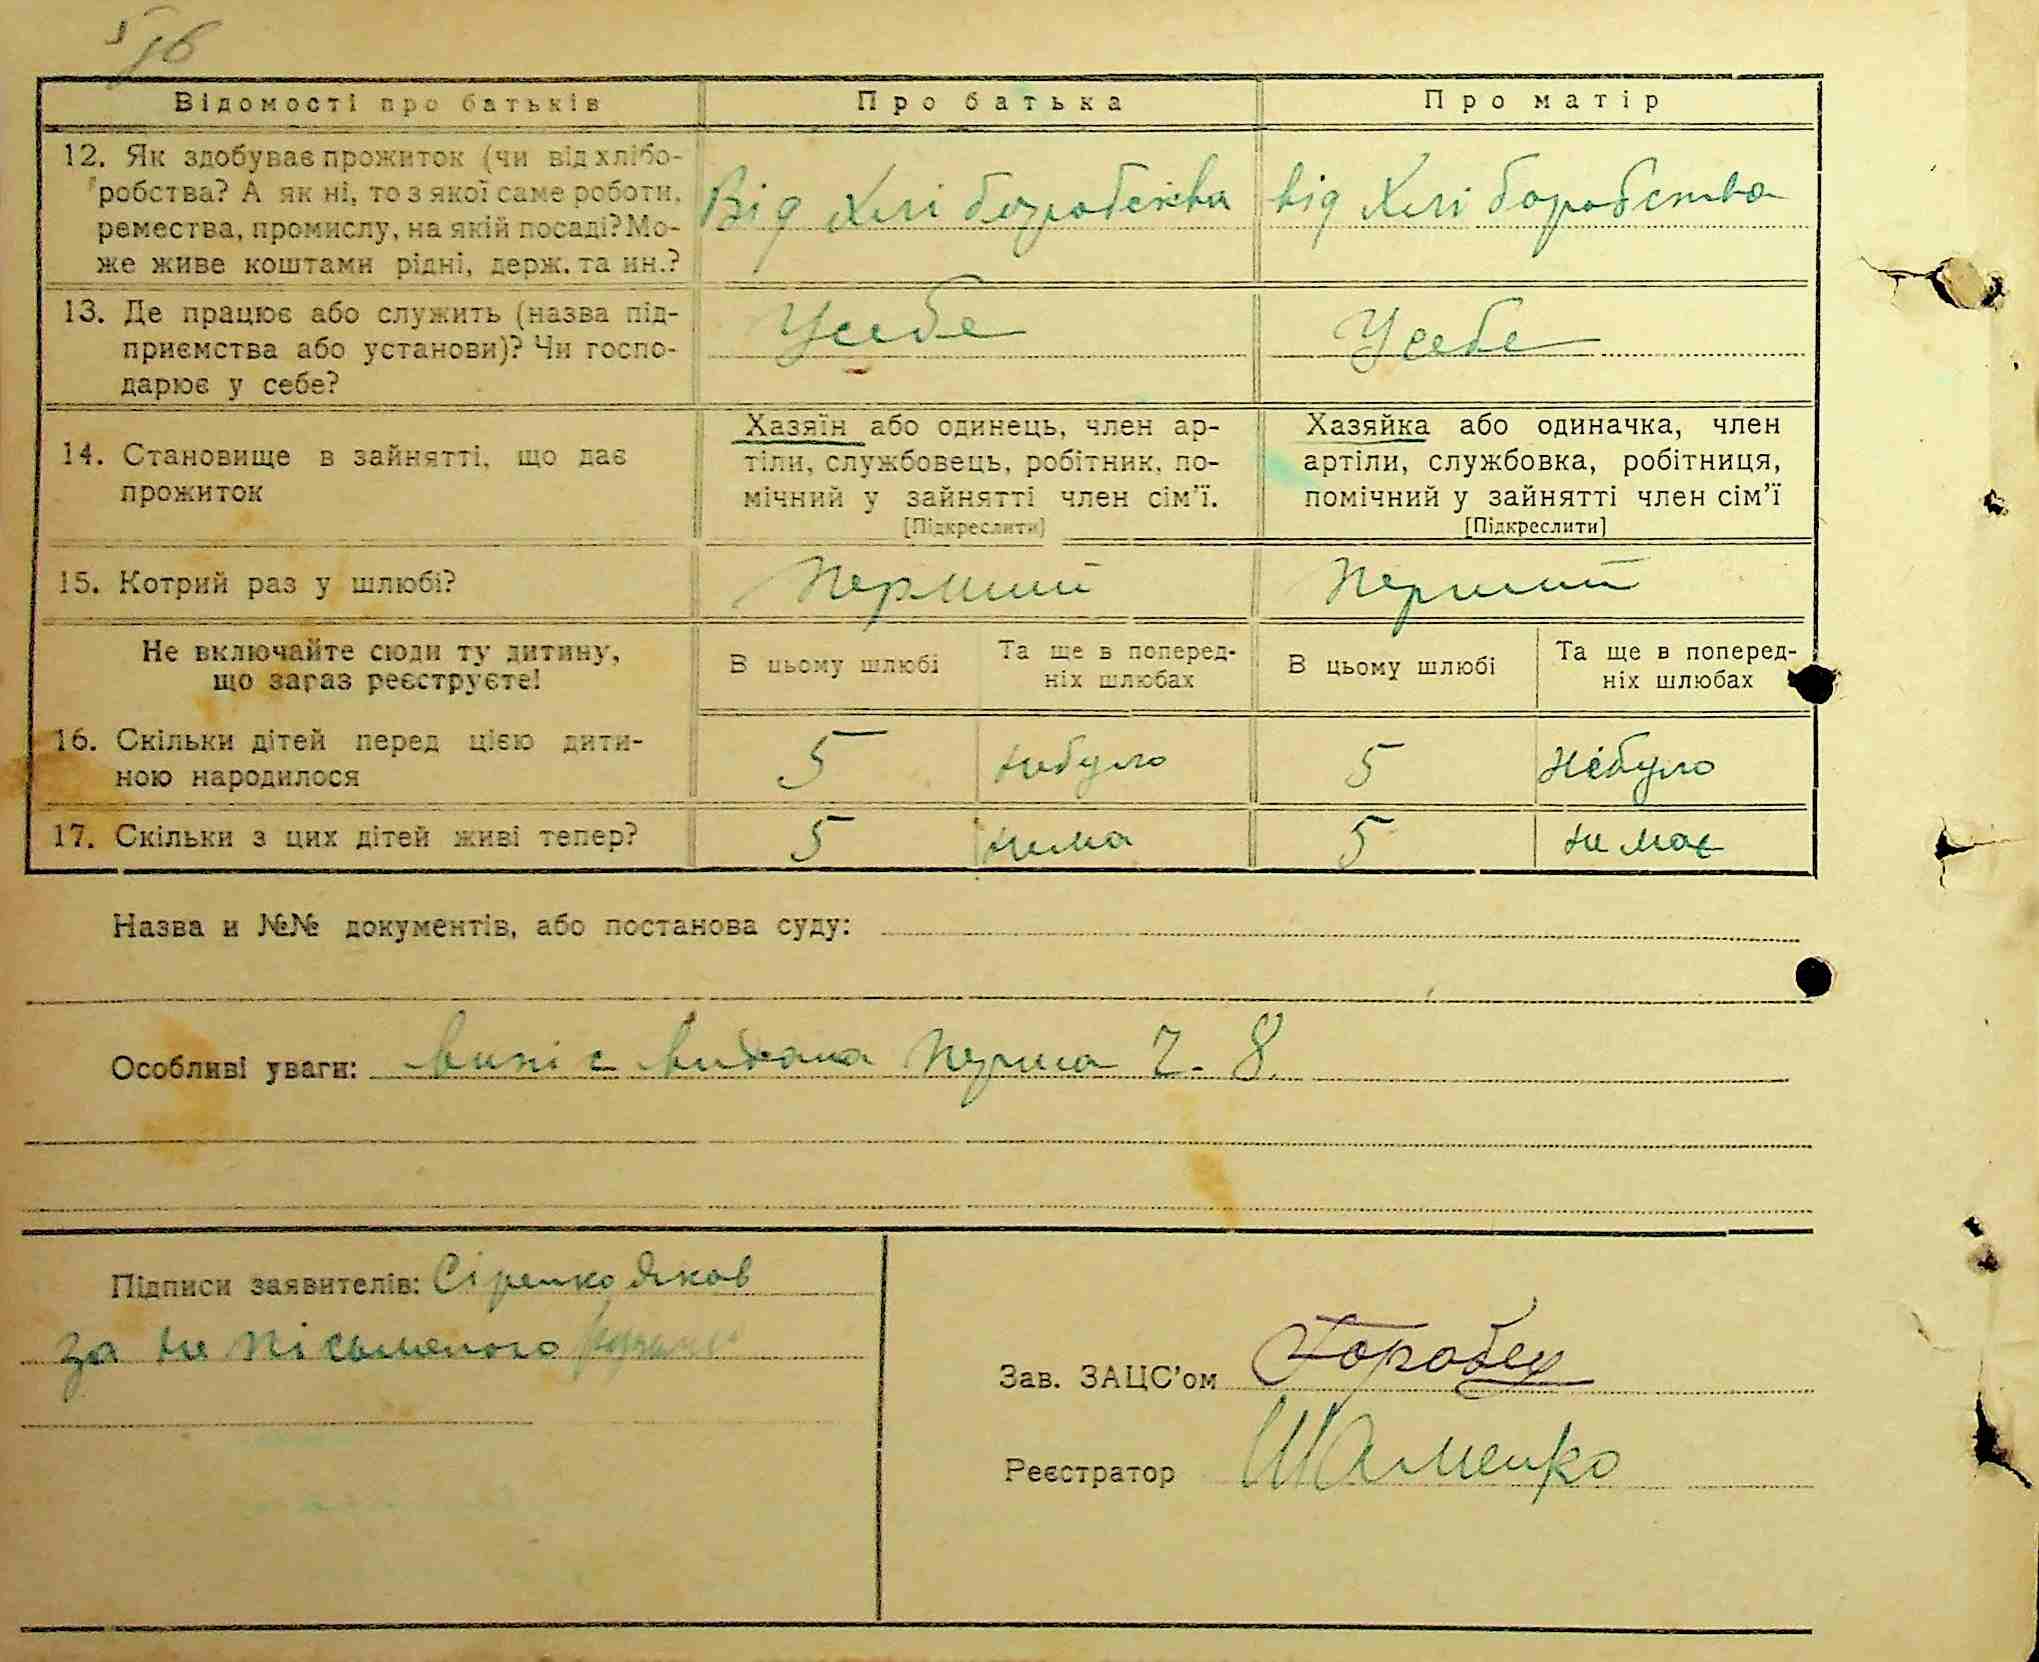 Відомості про батьків
Про батька
Про матір
12. Як здобуває прожиток (чи від хлібо-
робства? А як ні, то з якої саме роботи,
ремества, промислу, на якій посаді? Мо-
же живе коштами рідні, держ. та ин.?
Від Хлі боробства
від Хлі боробства
13. Де працює або служить (назва під-
приємства або установи)? Чи госпо-
дарює у себе?
Усебе
Усебе
14. Становище в зайнятті, що дає
прожиток
Хазяїн або одинець, член ар-
тіли, службовець, робітник, по-
мічний у зайнятті член сім'ї.
[Підкреслити]
Хазяйка або одиначка, член
артіли, службовка, робітниця,
помічний у зайнятті член сім'ї
[Підкреслити]
15. Котрий раз у шлюбі?
Перший
Перший
Не включайте сюди ту дитину,
що зараз реєструєте!
В цьому шлюбі
Та ще в поперед-
ніх шлюбах
В цьому шлюбі
Та ще в поперед-
ніх шлюбах
16. Скільки дітей перед цією дити-
ною народилося
5
небуло
5
небуло
17. Скільки з цих дітей живі тепер?
5
нима
5
не має
Назва и №№ документів, або постанова суду:
Особливі уваги: випіс видана перша Ч. 8.
Підписи заявителів: Сіренко Яков
за не пісьменого
Зав. ЗАЦС'ом
Реєстратор